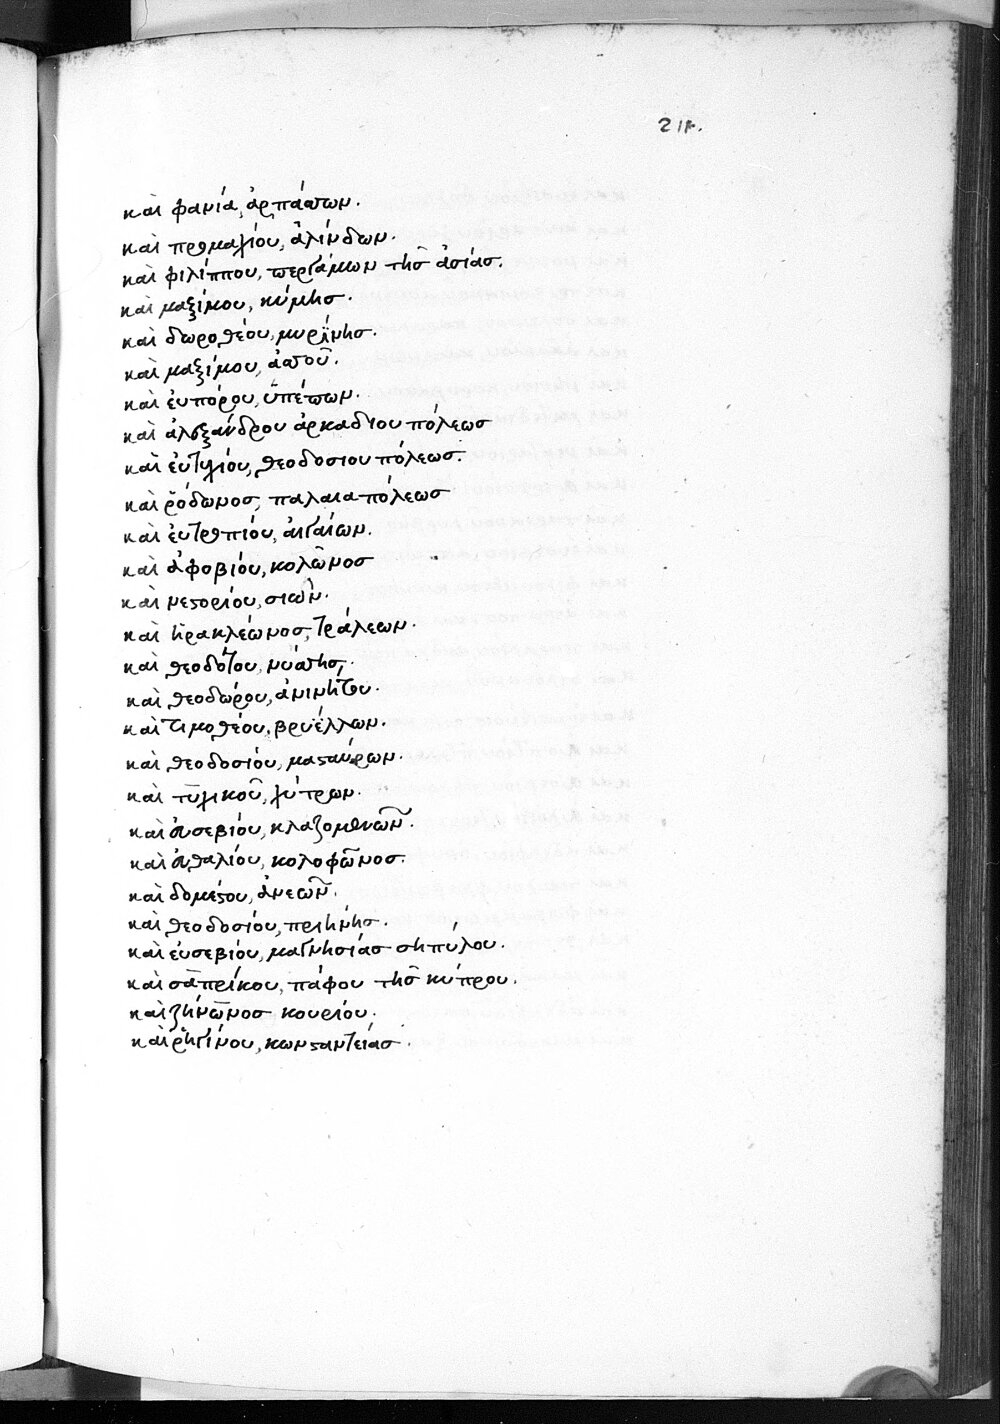 211.
καὶ φανία, ἁρπάσων.
καὶ προμαχίου, ἀλίνδων.
καὶ φιλίππου, περγάμων τῆς ἀσίας.
καὶ μαξίμου, κύμης.
καὶ δωροθέου, μυρίνης.
καὶ μαξίμου, ἀσσοῦ.
καὶ εὐπόρου, ὑπέπων.
καὶ ἀλεξάνδρου ἀρκαδιουπόλεως
καὶ εὐτυχίου, θεοδοσιουπόλεως.
καὶ ῥόδωνος, παλαιαπόλεως
καὶ εὐτροπίου, αἰγαίων.
καὶ ἀφοβίου, κολῶνος
καὶ νεστορίου, σιῶν.
καὶ ἡρακλέωνος, τράλεων.
καὶ θεοδότου, νύσσης.
καὶ θεοδώρου, ἀνινήτου.
καὶ τιμοθέου, βρυέλλων.
καὶ θεοδοσίου, μασταύρων.
καὶ τυχικοῦ, χύτρων.
καὶ εὐσεβίου, κλαζομενῶν.
καὶ εὐθαλίου, κολοφῶνος.
καὶ δομέστου, ἀνεῶν.
καὶ θεοδοσίου, πριήνης.
καὶ εὐσεβίου, μαγνησίας σηπύλου.
καὶ σαπρίκου, πάφου τῆς κύπρου.
καὶ ζήνωνος κουρίου.
καὶ ῥηγίνου, κωνσταντείας.